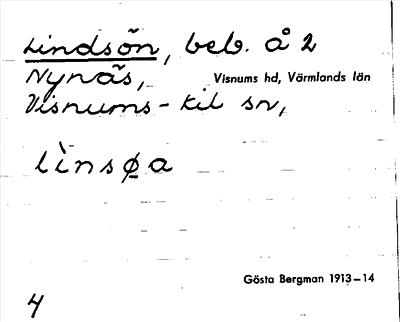 Lindsön, beb. å 2
Nynäs, Visnums hd, Värmlands län
Visnums-Kil sn,
lìnsø̠a
Gösta Bergman 1913–14
4